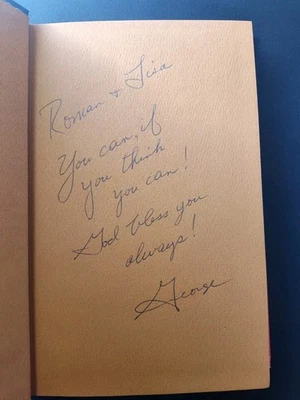 Roman & Lisa
You can, if
you think
you can!
God bless you
always!
George